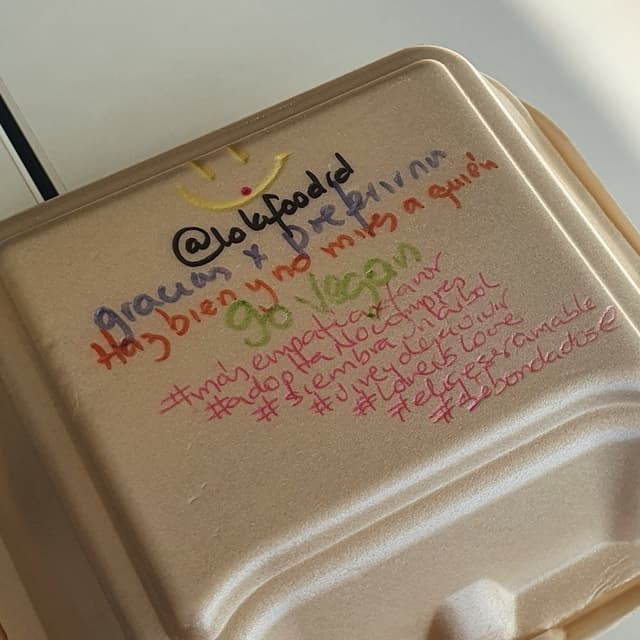 @lokfoodrd
gracias x preferirnu
Haz bien y no mires a quién
go vegan
#másempatiaxfavor
#adoptaNocompres
#siembraunárbol
#viveydejavivir
#LoveisLove
#eligeseramable
#sebondadose